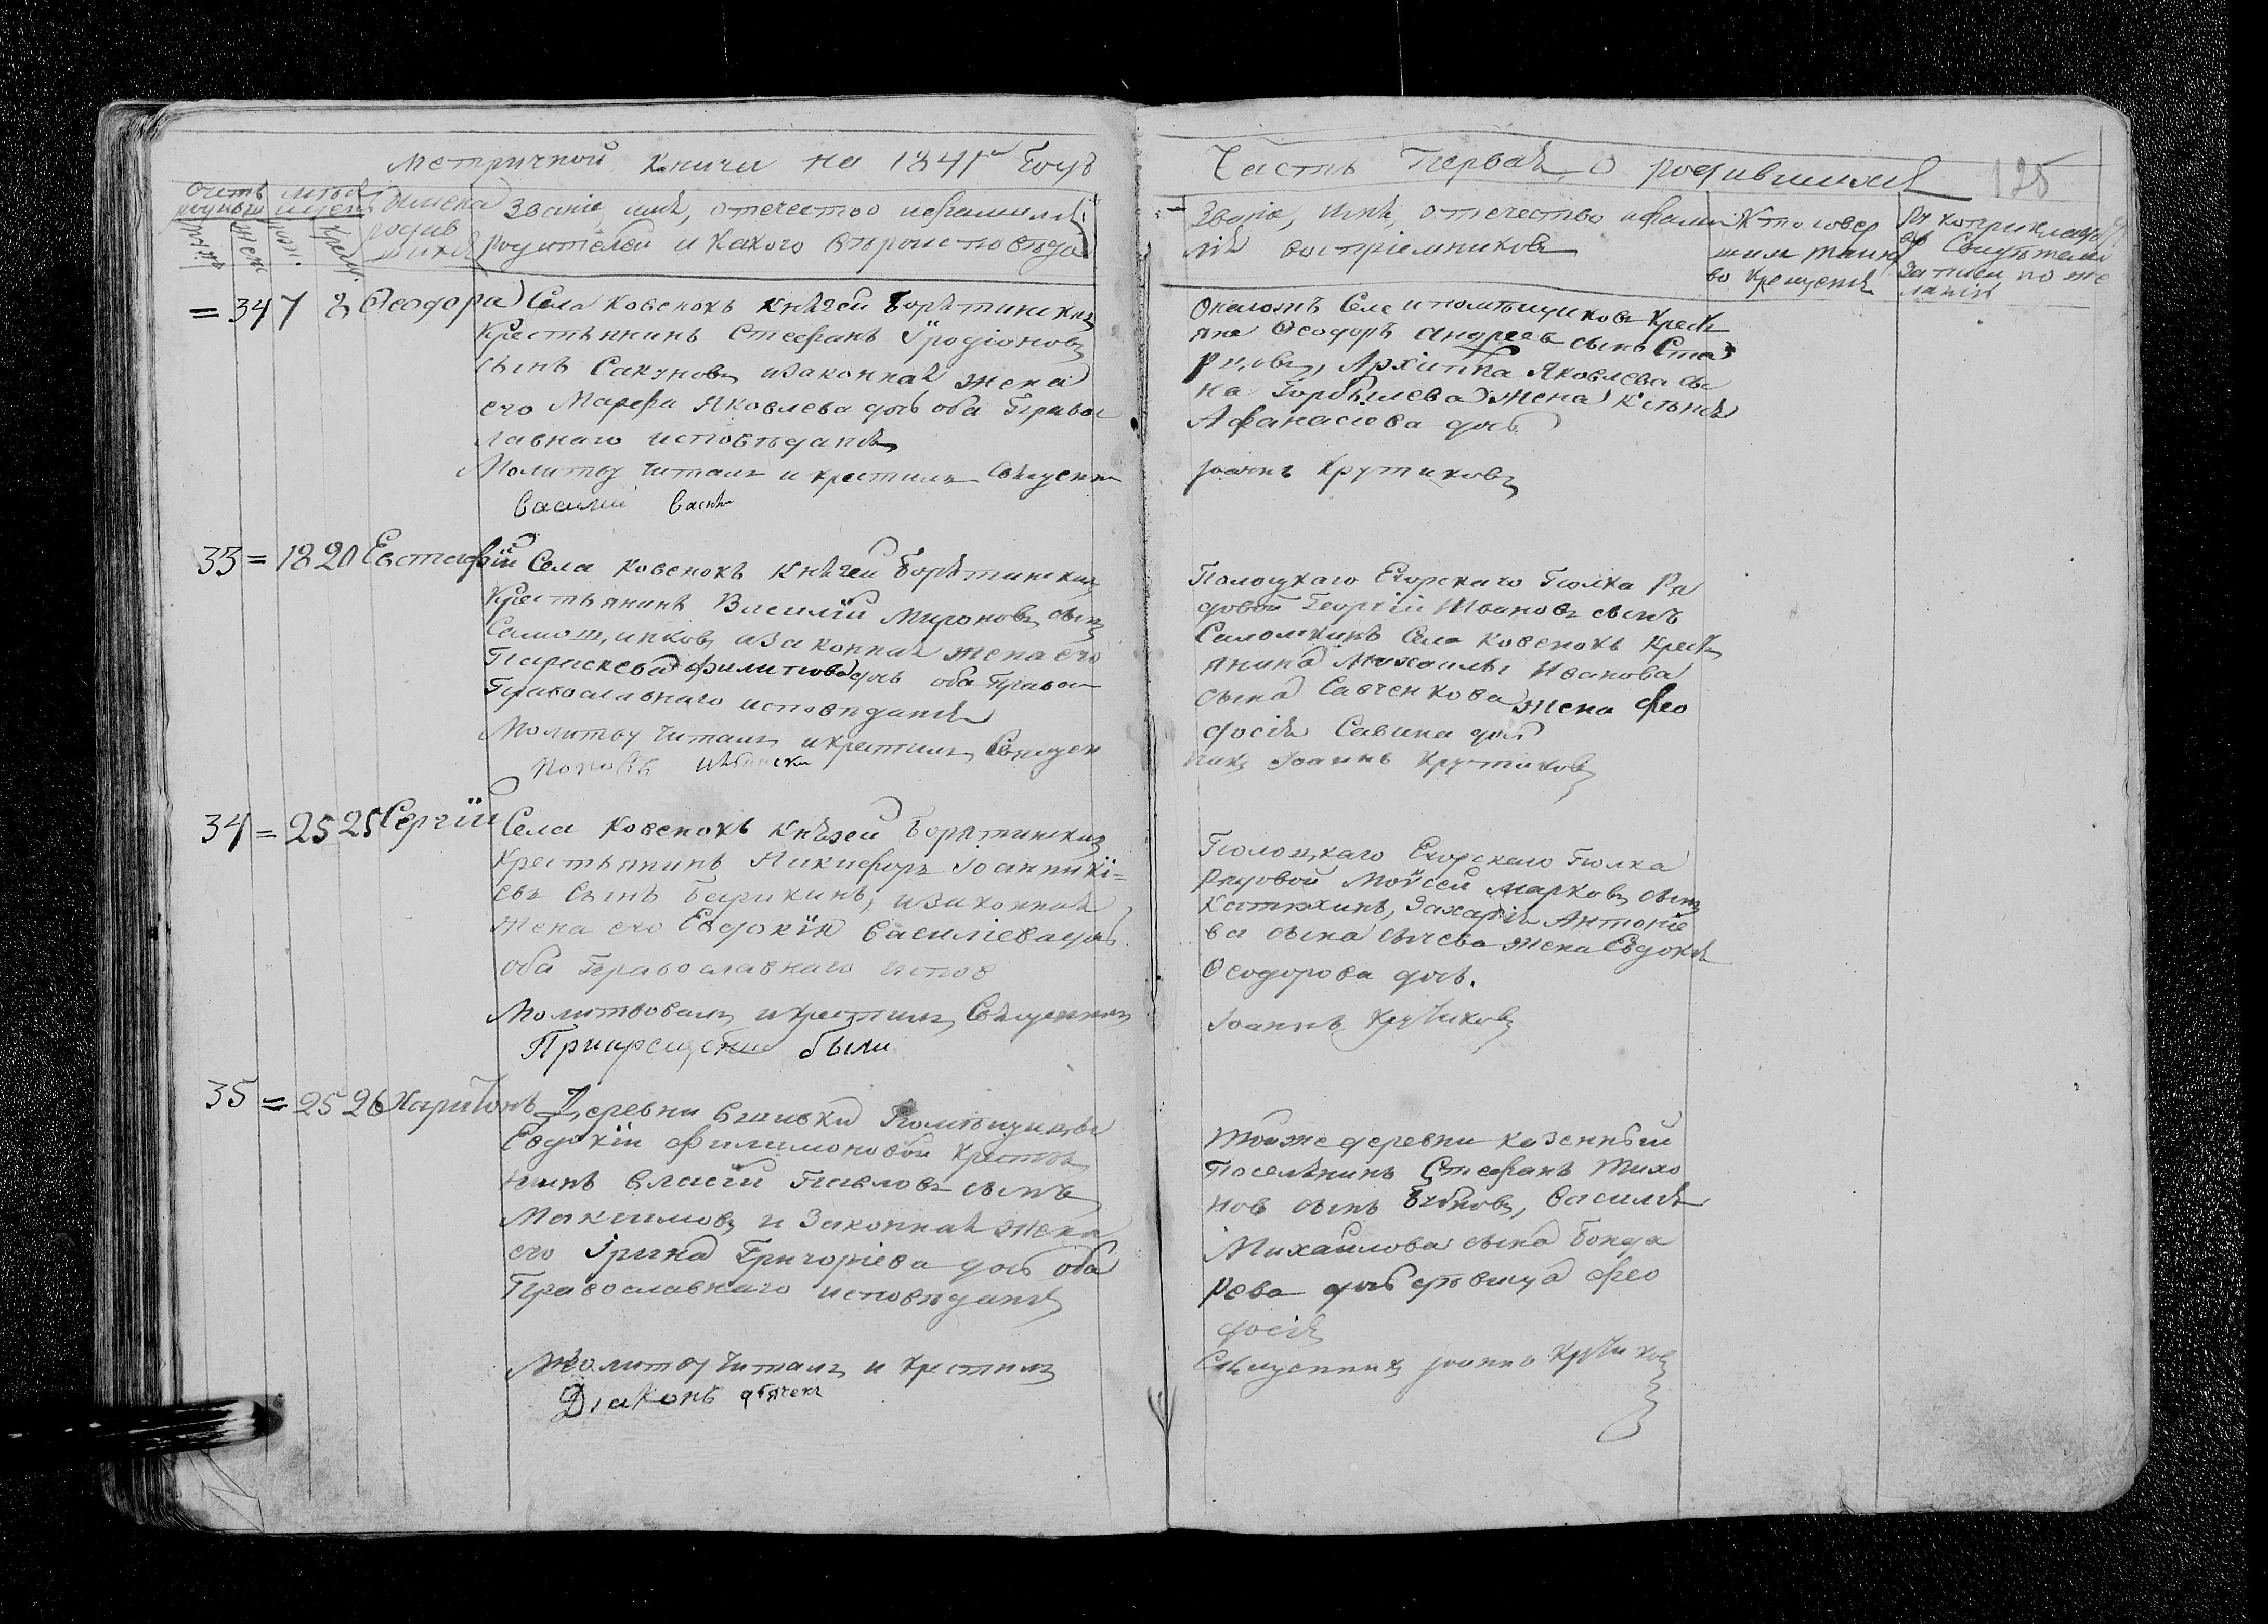 Метричной Книги на 1841й Годъ
Счетъ
родивш
муж.
жен.
Имена
родив
шихся
Званіе, имя, отечество и фамилія
родителей и какого вѣроисповѣда
= 34 7 8 Ѳеодора Села Ковенокъ Князей Борятинскихъ
Крестьянинъ Стефанъ Іродіоновъ
сынъ Сакуновъ и законная жена
его Марфа Яковлева дочь оба Право
славнаго исповѣданія
Молитву читалъ и крестилъ Священн
Василій
33 = 18 20 Евстафій Села Ковенокъ Князей Борятинскихъ
Крестьянинъ Василій Мироновъ сынъ
и законная жена его
Парискева Филипова дочь оба Право
Православнаго исповѣданія
Молитву читалъ и крестилъ Священ
34 = 25 25 Сергій Села Ковенокъ Князей Борятинскихъ
Крестьянинъ Никифоръ Іоанникі=
евъ сынъ Барикинъ, и законная
жена его Евдокія Василіева дочь
оба Православнаго испов
Молитвовалъ и крестилъ Священникъ
При крещеніи были
35 = 25 26 Харитонъ Деревни Помѣщицы
Евдокіи Филимоновой Крестья
нинъ Власій Павловъ сынъ
Максимовъ и Законная жена
его Ірина Григоріева дочь оба
Православнаго исповѣданія
Молитву читалъ и крестилъ
Діаконъ дьячекъ
Часть Первая О родившихся 125
Званіе, имя, отечество и фами
лія воспріемниковъ
Кто совер
шилъ таинс
во крещенія
Рукоприкладс
во Свидѣтелей
записи по же
ланію
Села и помѣщиковъ Крестья
Ѳеодоръ Андреевъ сынъ Ста
Архиппа Яковлева сы
на Горбылева жена Ксенія
Афанасіева дочь
Іоаннъ Крутиковъ
Полоцкаго Егорскаго Полка Ря
довой Георгій Ивановъ сынъ
Саломкинъ Села Ковенокъ Крестья
янина Михаилы Иванова
сына Савченкова жена Фео
досія Савина дочь
никъ Іоаннъ Крутиковъ
Полоцкаго Егорскаго Полка
Рядовой Мойсей Марковъ сынъ
Катюхинъ, Захарія Антоніе
ва сына Сычева жена Евдокія
Ѳеодорова дочь.
Іоаннъ Крутиковъ
Той же деревни казенный
Поселянинъ Стефанъ Тихо
новъ сынъ Бубновъ, Василія
Михайлова сына Бонда
рева дочь дѣвица Фео
досія
Священникъ Іоаннъ Крутиковъ